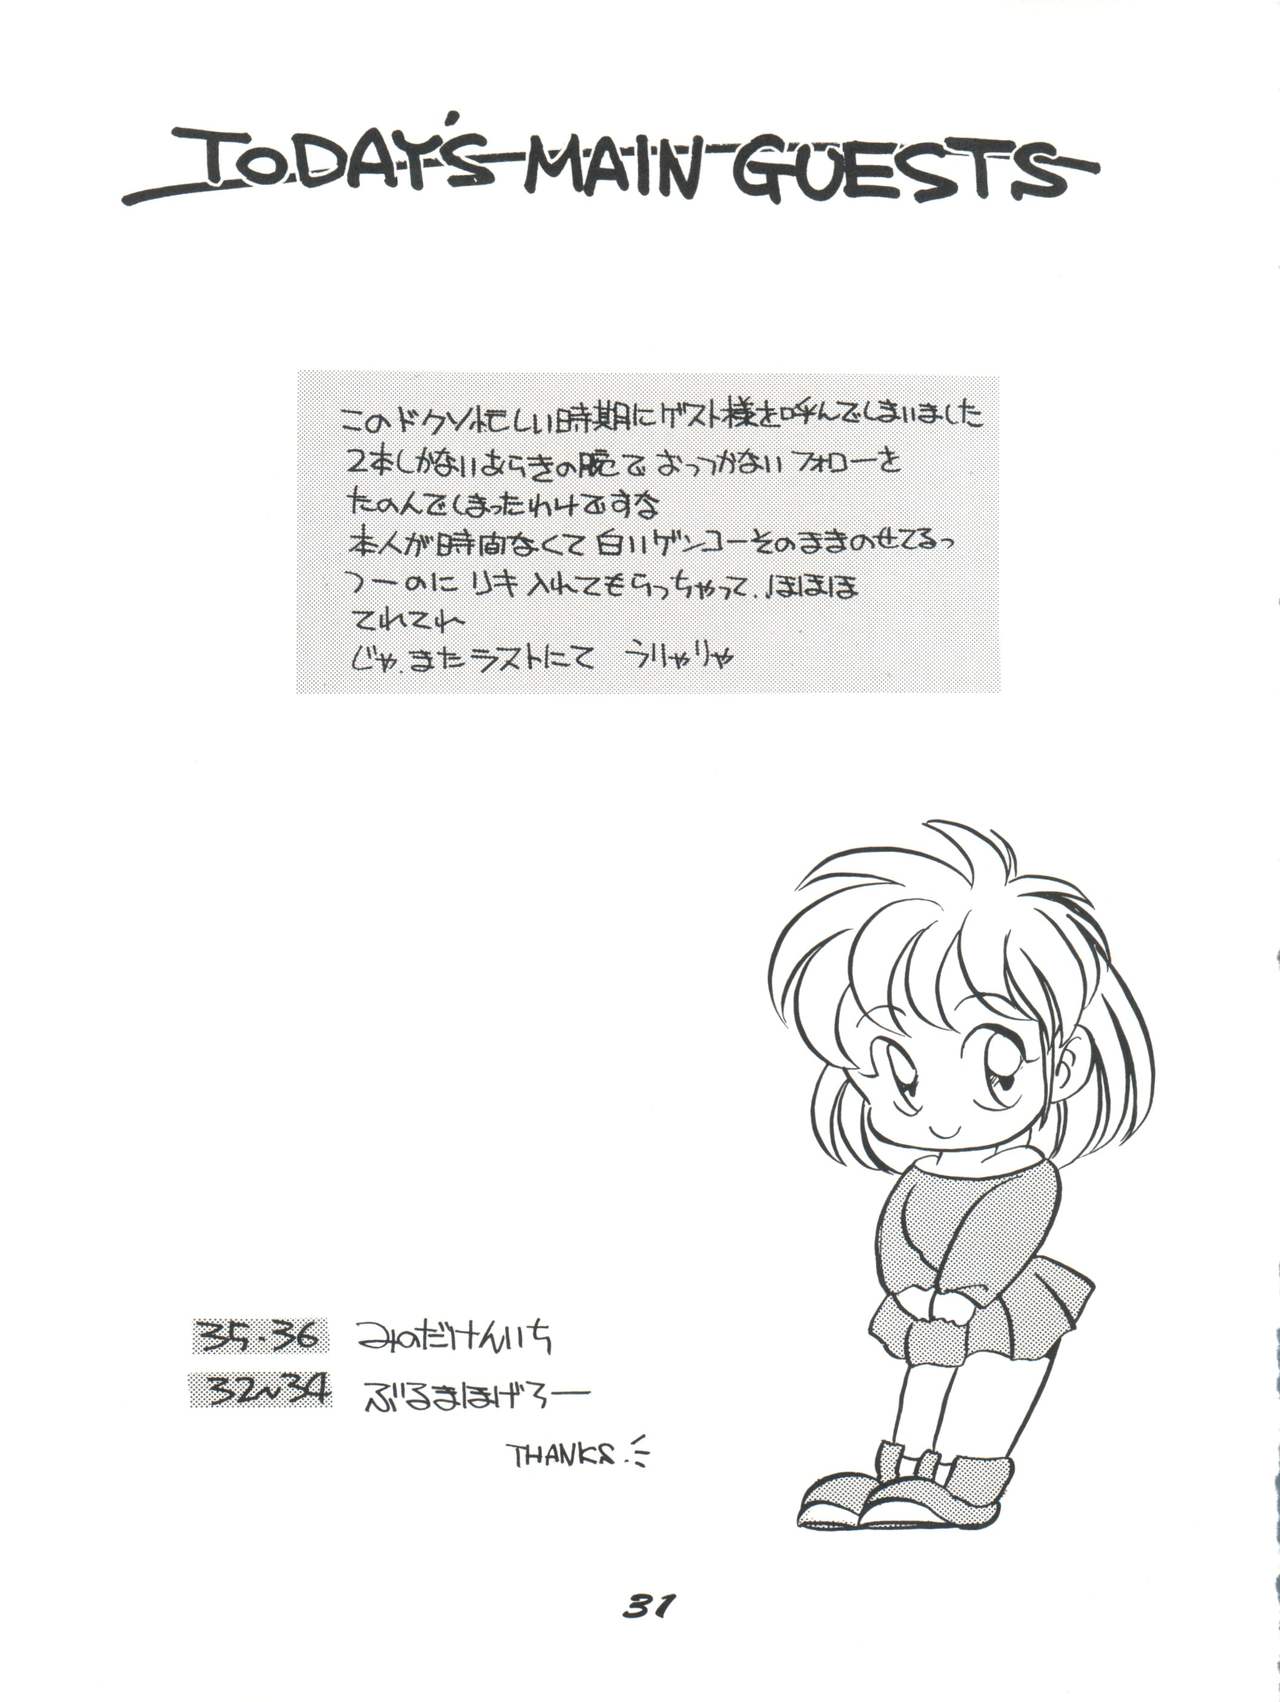 TODAY'S MAIN GUESTS
このドクソ忙しい時期にゲスト様を呼んでしまいました
2本しかないあらきの腕で おっつかない フォローを
たのんでしまったわけですな
本人が時間なくて 白いゲンコーそのままのせてるっ
つーのに リキ入れてもらっちゃって、ほほほ
てれてれ
じゃ、またラストにて うりゃりゃ
35・36 みのだけんいち
32~34 ぶるまほげろー
THANKS.
31